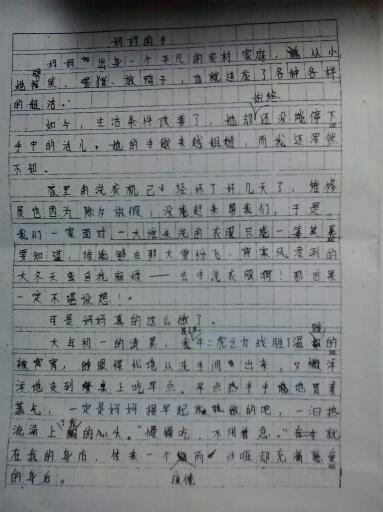 妈妈的手
妈妈出生一个平凡的农村家庭，从小
她砍柴、喂猪、放鸭子，也就造成了各种各样
的粗活。
始终
如今，生活条件改善了，她却还没能停下
手中的活儿。她的手越来越粗糙，而我还浑然
不知。
家里的洗衣机已经坏了好几天了，维修
员也因为除夕放假，没能赶来帮我们，于是，
我们一家面对一大堆未洗的衣服只能一筹莫展
要知道，谁能够在那大雪纷飞、寒风凛冽的
大冬天里自找麻烦——去手洗衣服啊！那后果
一定不堪设想！。
可是妈妈真的这么做了。
大年初一的清晨，我九牛二虎之力战胜了温暖的
被窝窝，睡眼惺忪地从洗手间出来，又懒洋
洋地走到餐桌上吃早点。早点热乎乎地冒着
蒸气，一定是妈妈提早起来做的吧，一泊热
流涌上的心头。“慢慢吃，不用着急。”就
在我的身后，传来一个沙哑却充满慈爱
的身后。
疲倦